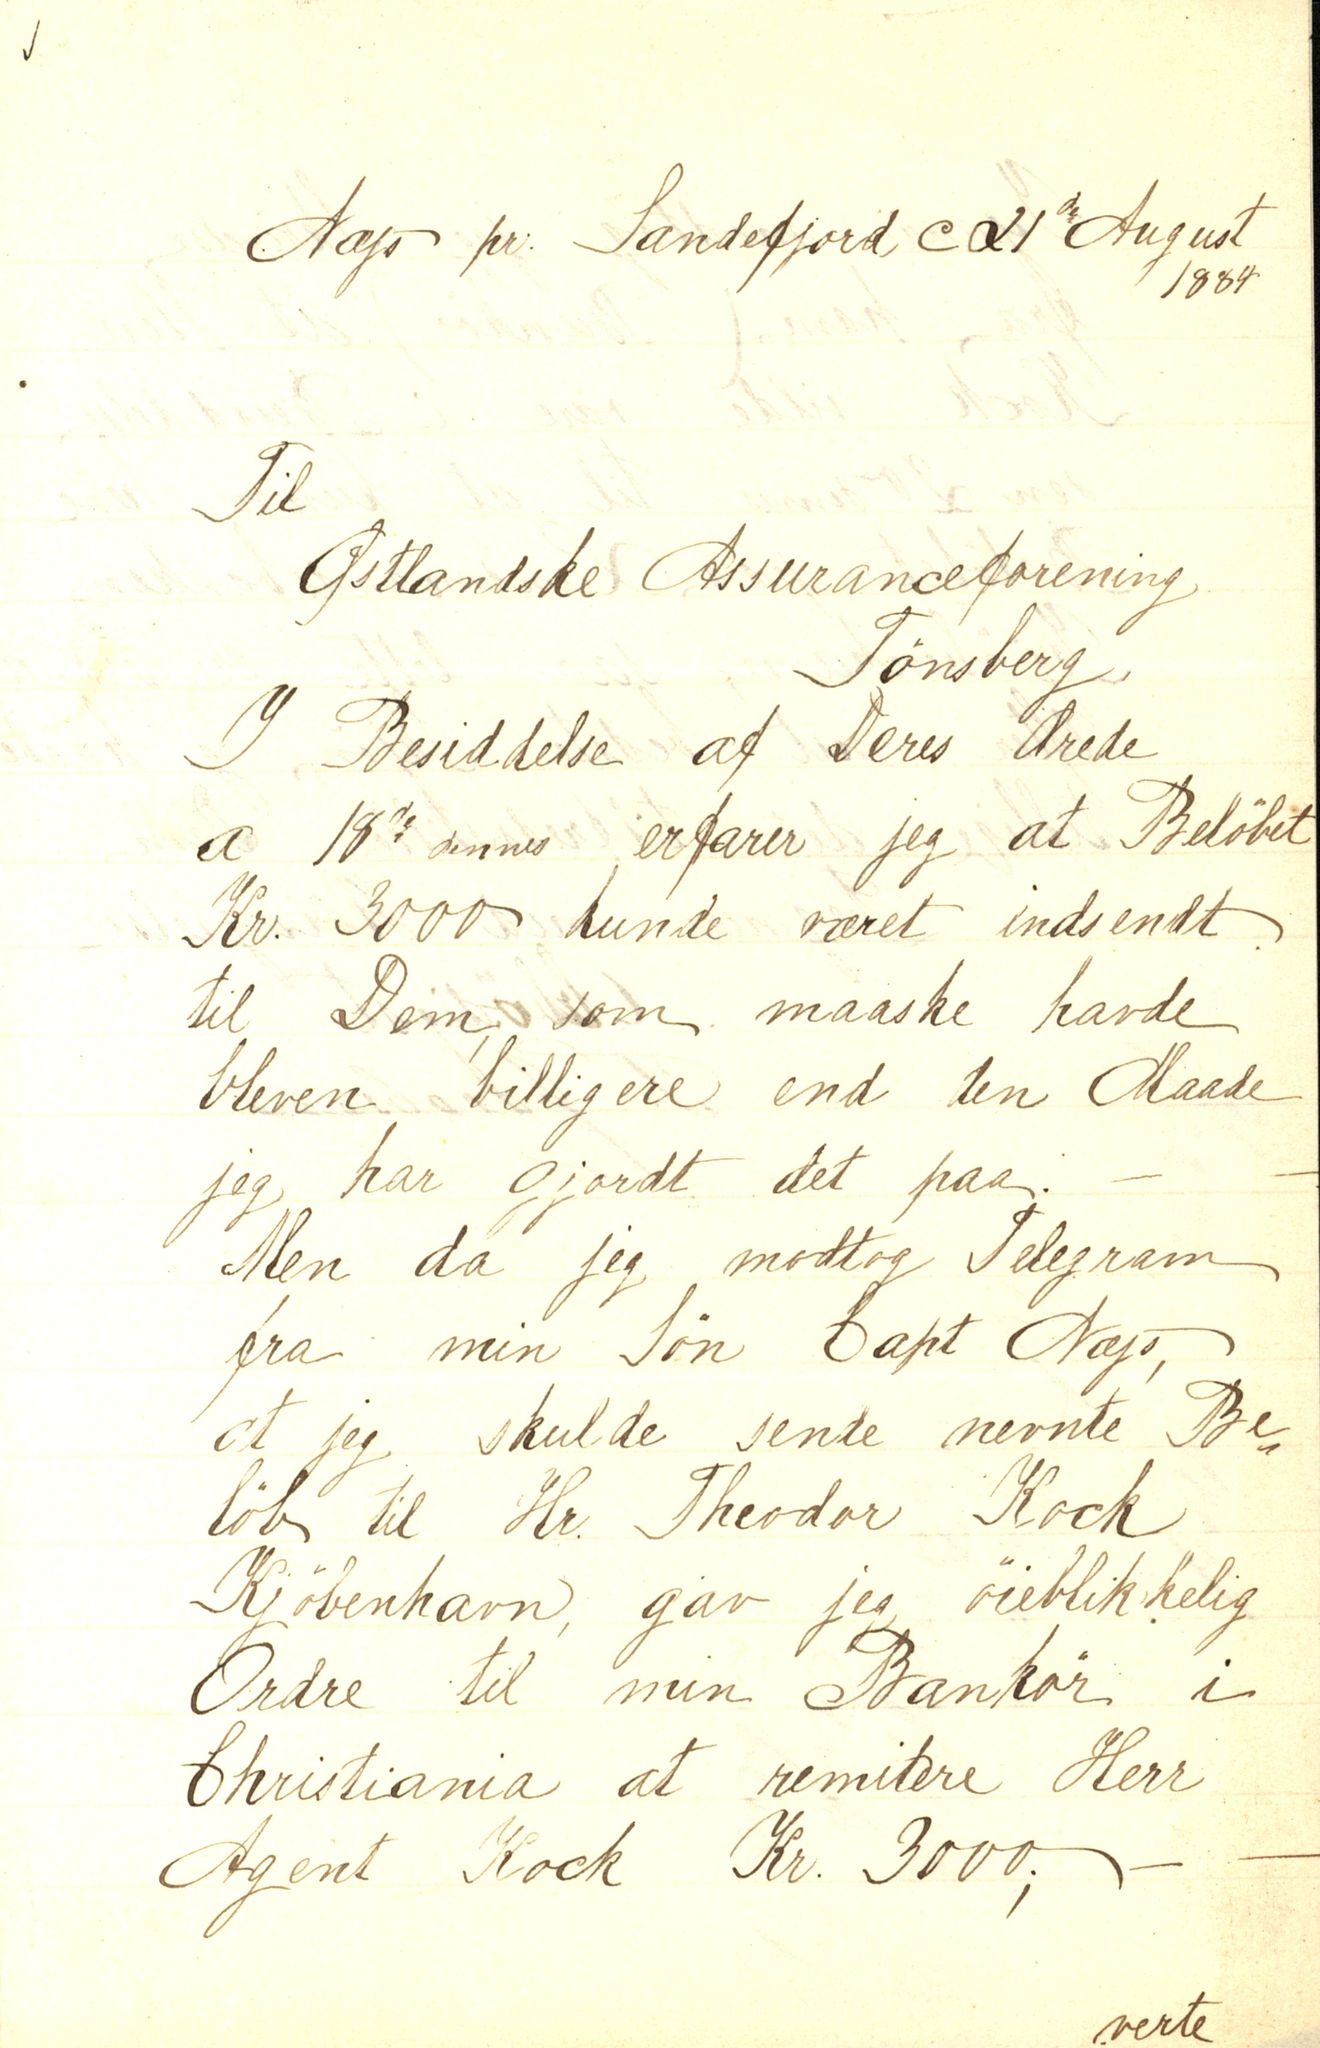 Næss pr. Sandefjord d 21de August
1884
Til
Östlandske Assuranceforening
Tönsberg.
I Besiddelse af Deres ærede
a 18de dennes erfarer jeg at Belöbet
Kr. 3000 kunde været indsendt
til Dem, som maaske havde
bleven billigere end den Maade
jeg har gjordt det paa. —
Men da jeg modtog Telegram
fra min Sön Capt Næss,
at jeg skulde sende nevnte Be-
löb til Hr. Theodor Kock
Kjöbenhavn, gav jeg öieblikkelig
Ordre til min Bankör i
Christiania at remitere Herr
Agent Kock Kr. 3000,—
verte